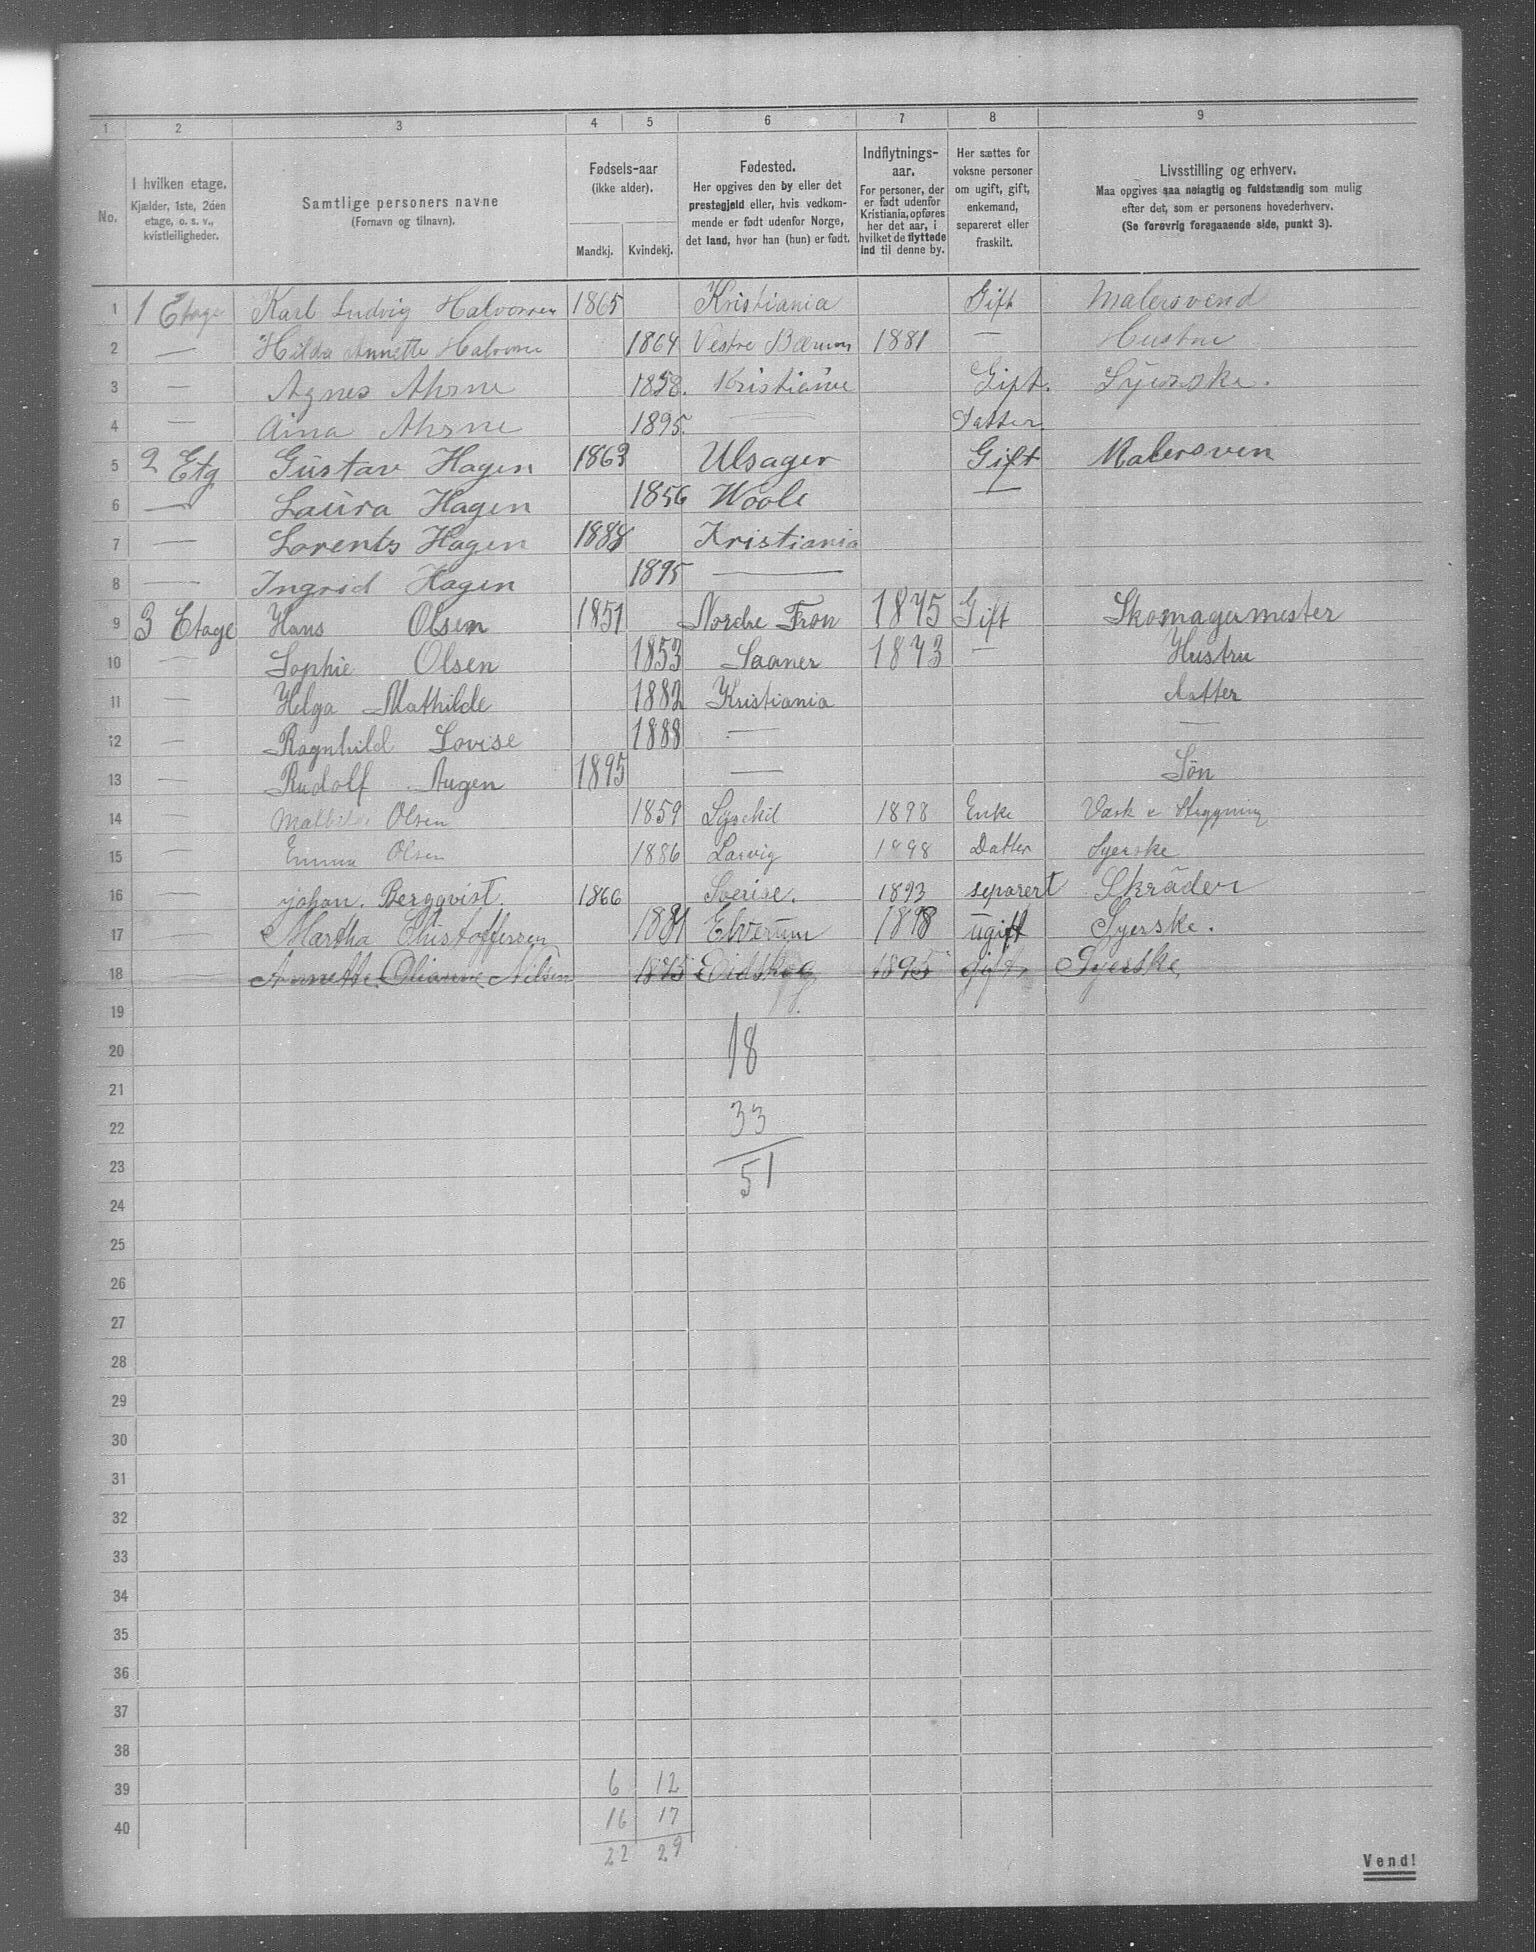 1 2 3 4 5 6 7 8 9
No.
I hvilken etage.
Kjælder, 1ste, 2den
etage, o. s. v.,
kvistleiligheder.
Samtlige personers navne
(Fornavn og tilnavn).
Fødsels-aar
(ikke alder).
Mandkj. Kvindekj.
Fødested.
Her opgives den by eller det
prestegjeld eller, hvis vedkom-
mende er født udenfor Norge,
det land, hvor han (hun) er født.
Indflytnings-
aar.
For personer, der
er født udenfor
Kristiania, opføres
her det aar, i
hvilket de flyttede
ind til denne by.
Her sættes for
voksne personer
om ugift, gift,
enkemand,
separeret eller
fraskilt.
Livsstilling og erhverv.
Maa opgives saa nøiagtig og fuldstændig som mulig
efter det, som er personens hovederhverv.
(Se forøvrig foregaaende side, punkt 3).
1 1 Etage Karl Ludvig Halvorsen 1865 Kristiania Gift Malersvend
2 — Hilda Annette Halvorsen 1864 Vestre Bærum 1881 — Hustru
3 — Agnes Ahrne 1858. Kristiania Gift. Syerske.
4 — Aina Ahrne 1895. — Datter.
5 2 Etg Gustav Hagen 1863 Ulsager Gift Malersven
6 — Laura Hagen 1856 Hoole —
7 — Lorents Hagen 1888 Kristiania
8 — Ingrid Hagen 1895 —
9 3 Etage Hans Olsen 1851 Nordre Fron 1875 Gift Skomagermester
10 — Sophie Olsen 1853 Saaner 1873 — Hustru
11 — Helga Mathilde 1882 Kristiania Datter
12 — Ragnhild Lovise 1888 — —
13 — Rudolf Augen 1895 — Søn
14 — Mathilde Olsen 1859 1898 Enke Vask
15 — Emma Olsen 1886 Larvig 1898 Datter Syerske
16 — Johan Bergqvist. 1866 Sverige. 1893 separert Skräder
17 — Martha Christoffersen 1881 Elverum 1898 ugift Syerske.
18 — Annette Olianne Nilsen 1875 Vidskog 1895 gift, Syerske,
19
20 18
21
22 33
23 51
24
25
26
27
28
29
30
31
32
33
34
35
36
37
38
39 6 12
40 16 17
22 29
Vend!